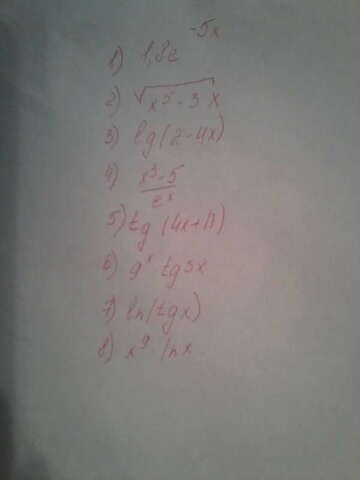 1) 1,8e^-5x
2) √x⁵-3x
3) lg(2-4x)
4) x³-5 / eˣ
5) tg (4x+П)
6) 9ˣ tg3x
7) ln(tgx)
8) x⁹ · lnx